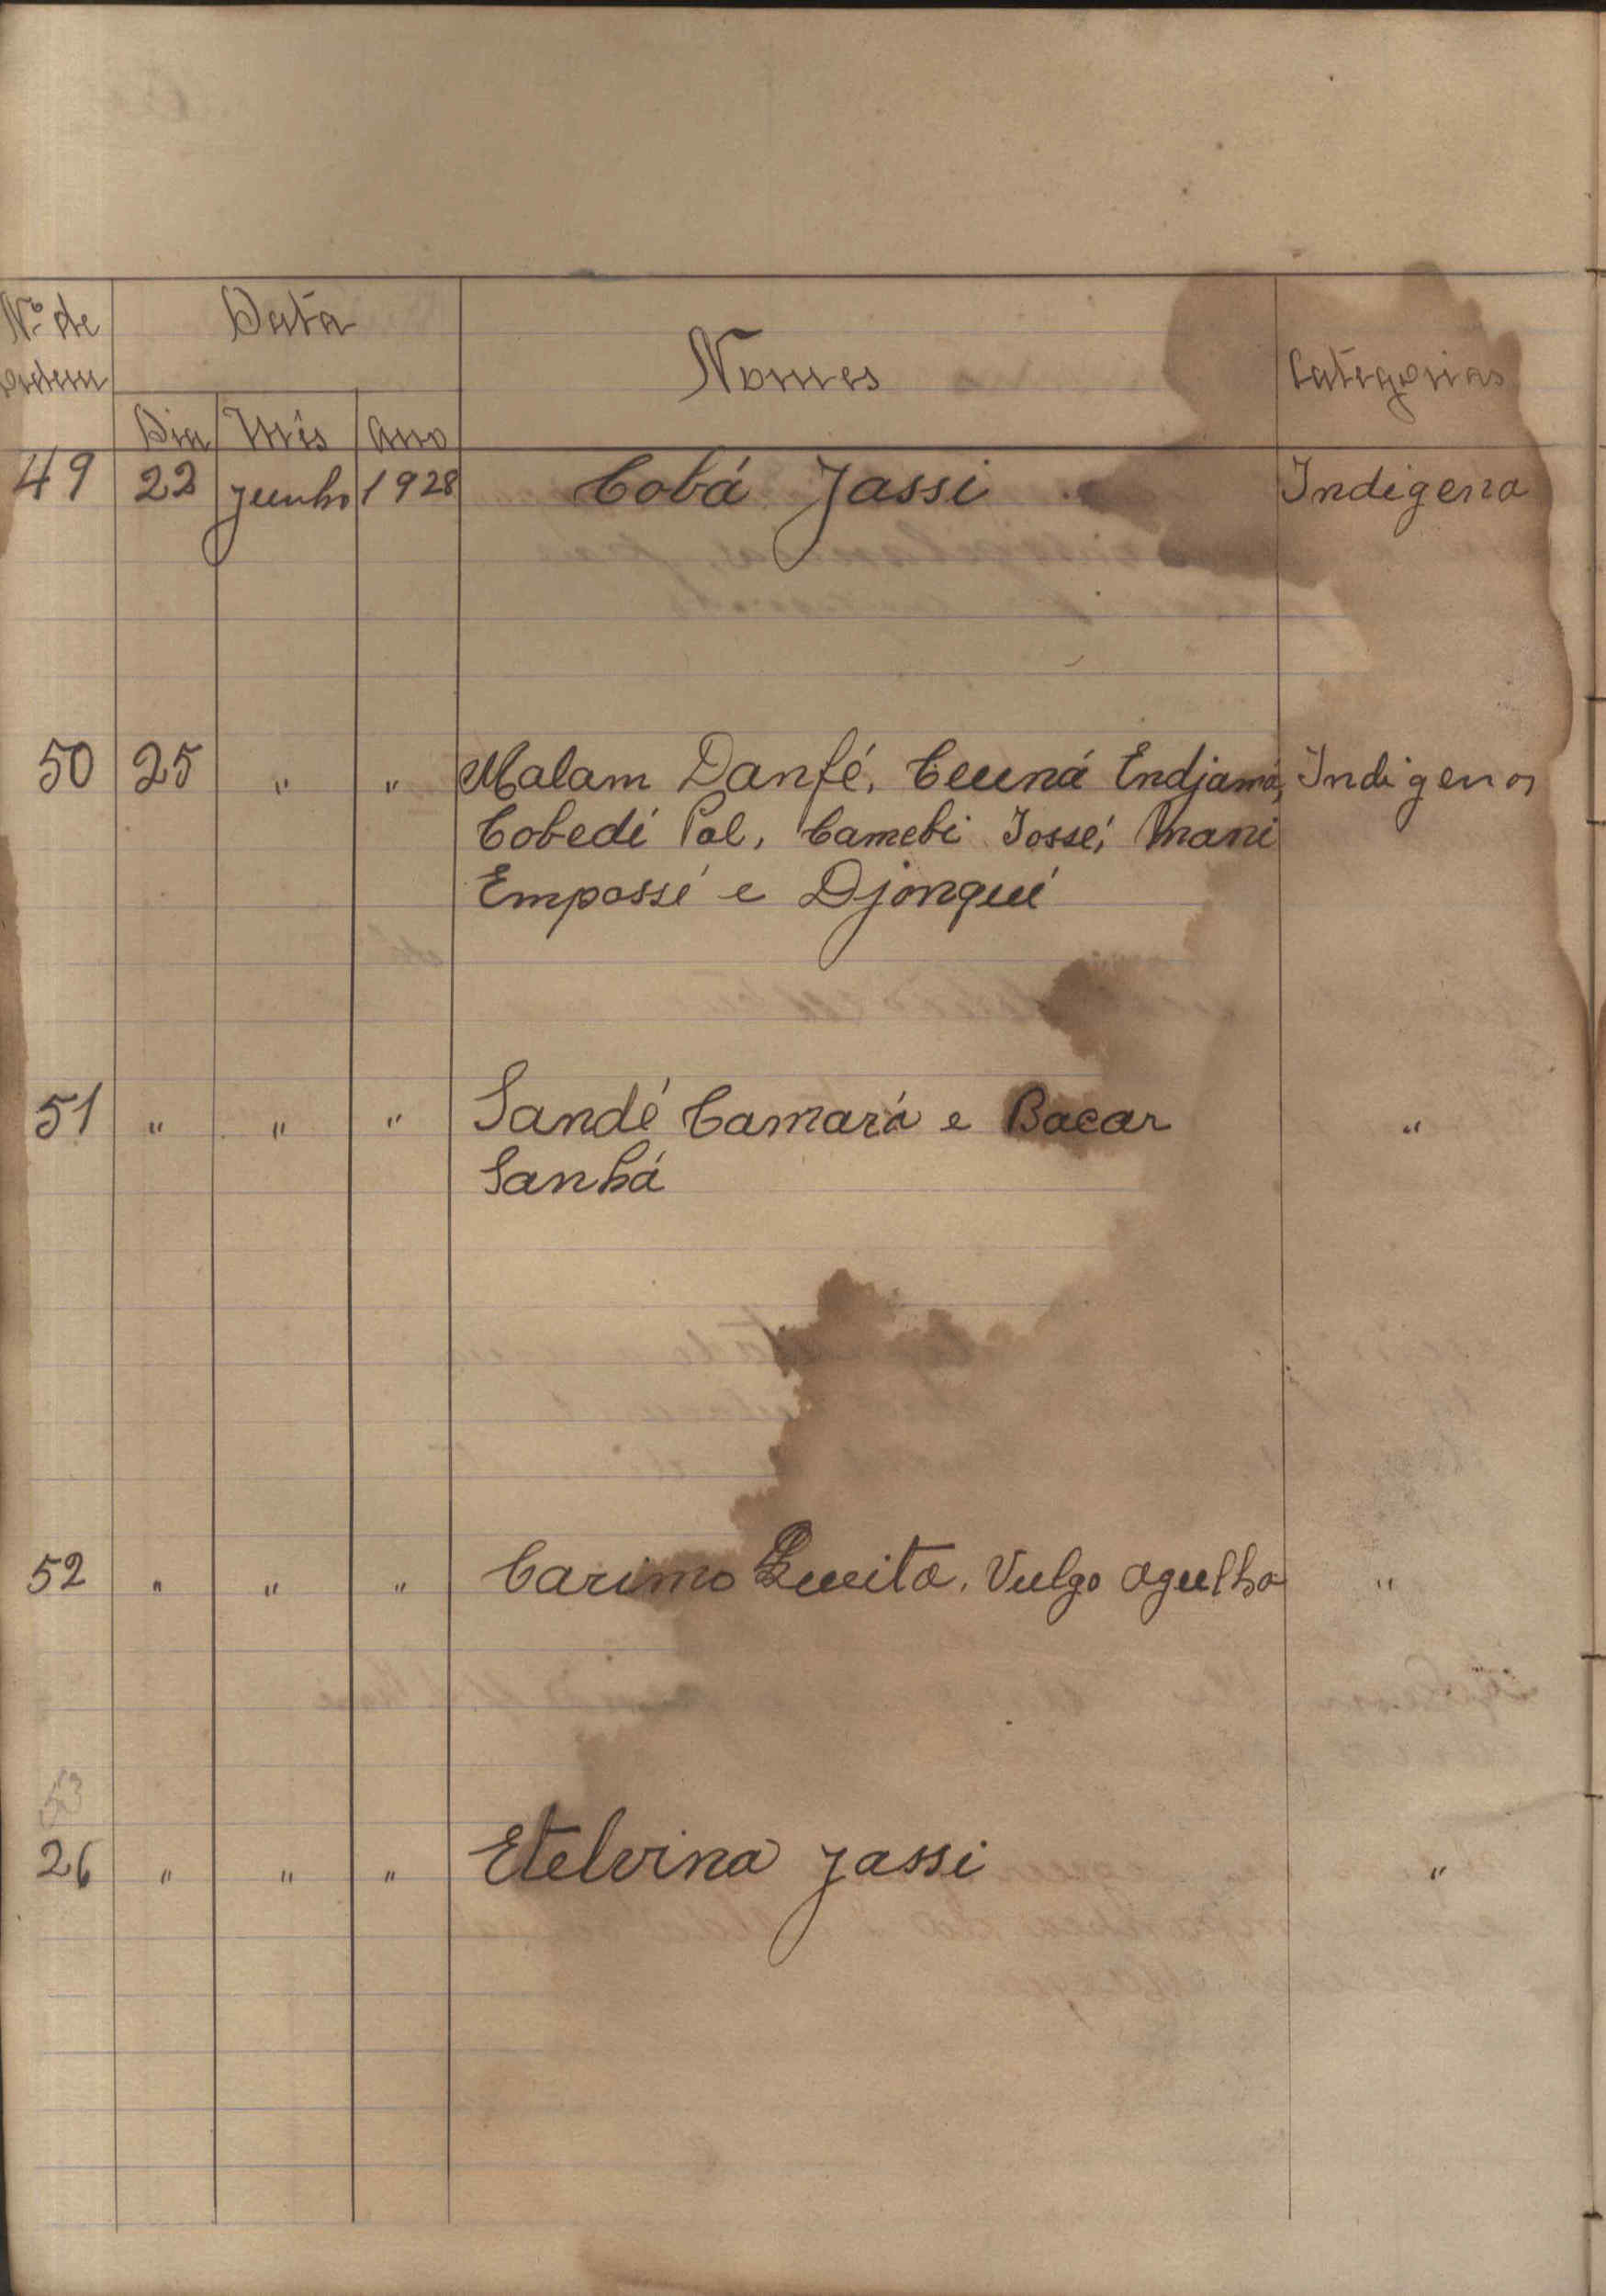 Nº de
ordem
Data
Nomes
Categorias
Dia Mês Ano
49 22 junho 1928 Cobá Jassi Indigena
50 25 " " Malam Danfé, Ceuná Endjamá, Indigenas
Cobedi Pol, Camebi Jossé, Mani
Empossé e Djonqué
51 " " " Sandé Camará e Bacar "
Sanhá
52 " " " Carimo Queita, Vulgo agulha "
53
26 " " " Etelvina Jassi "